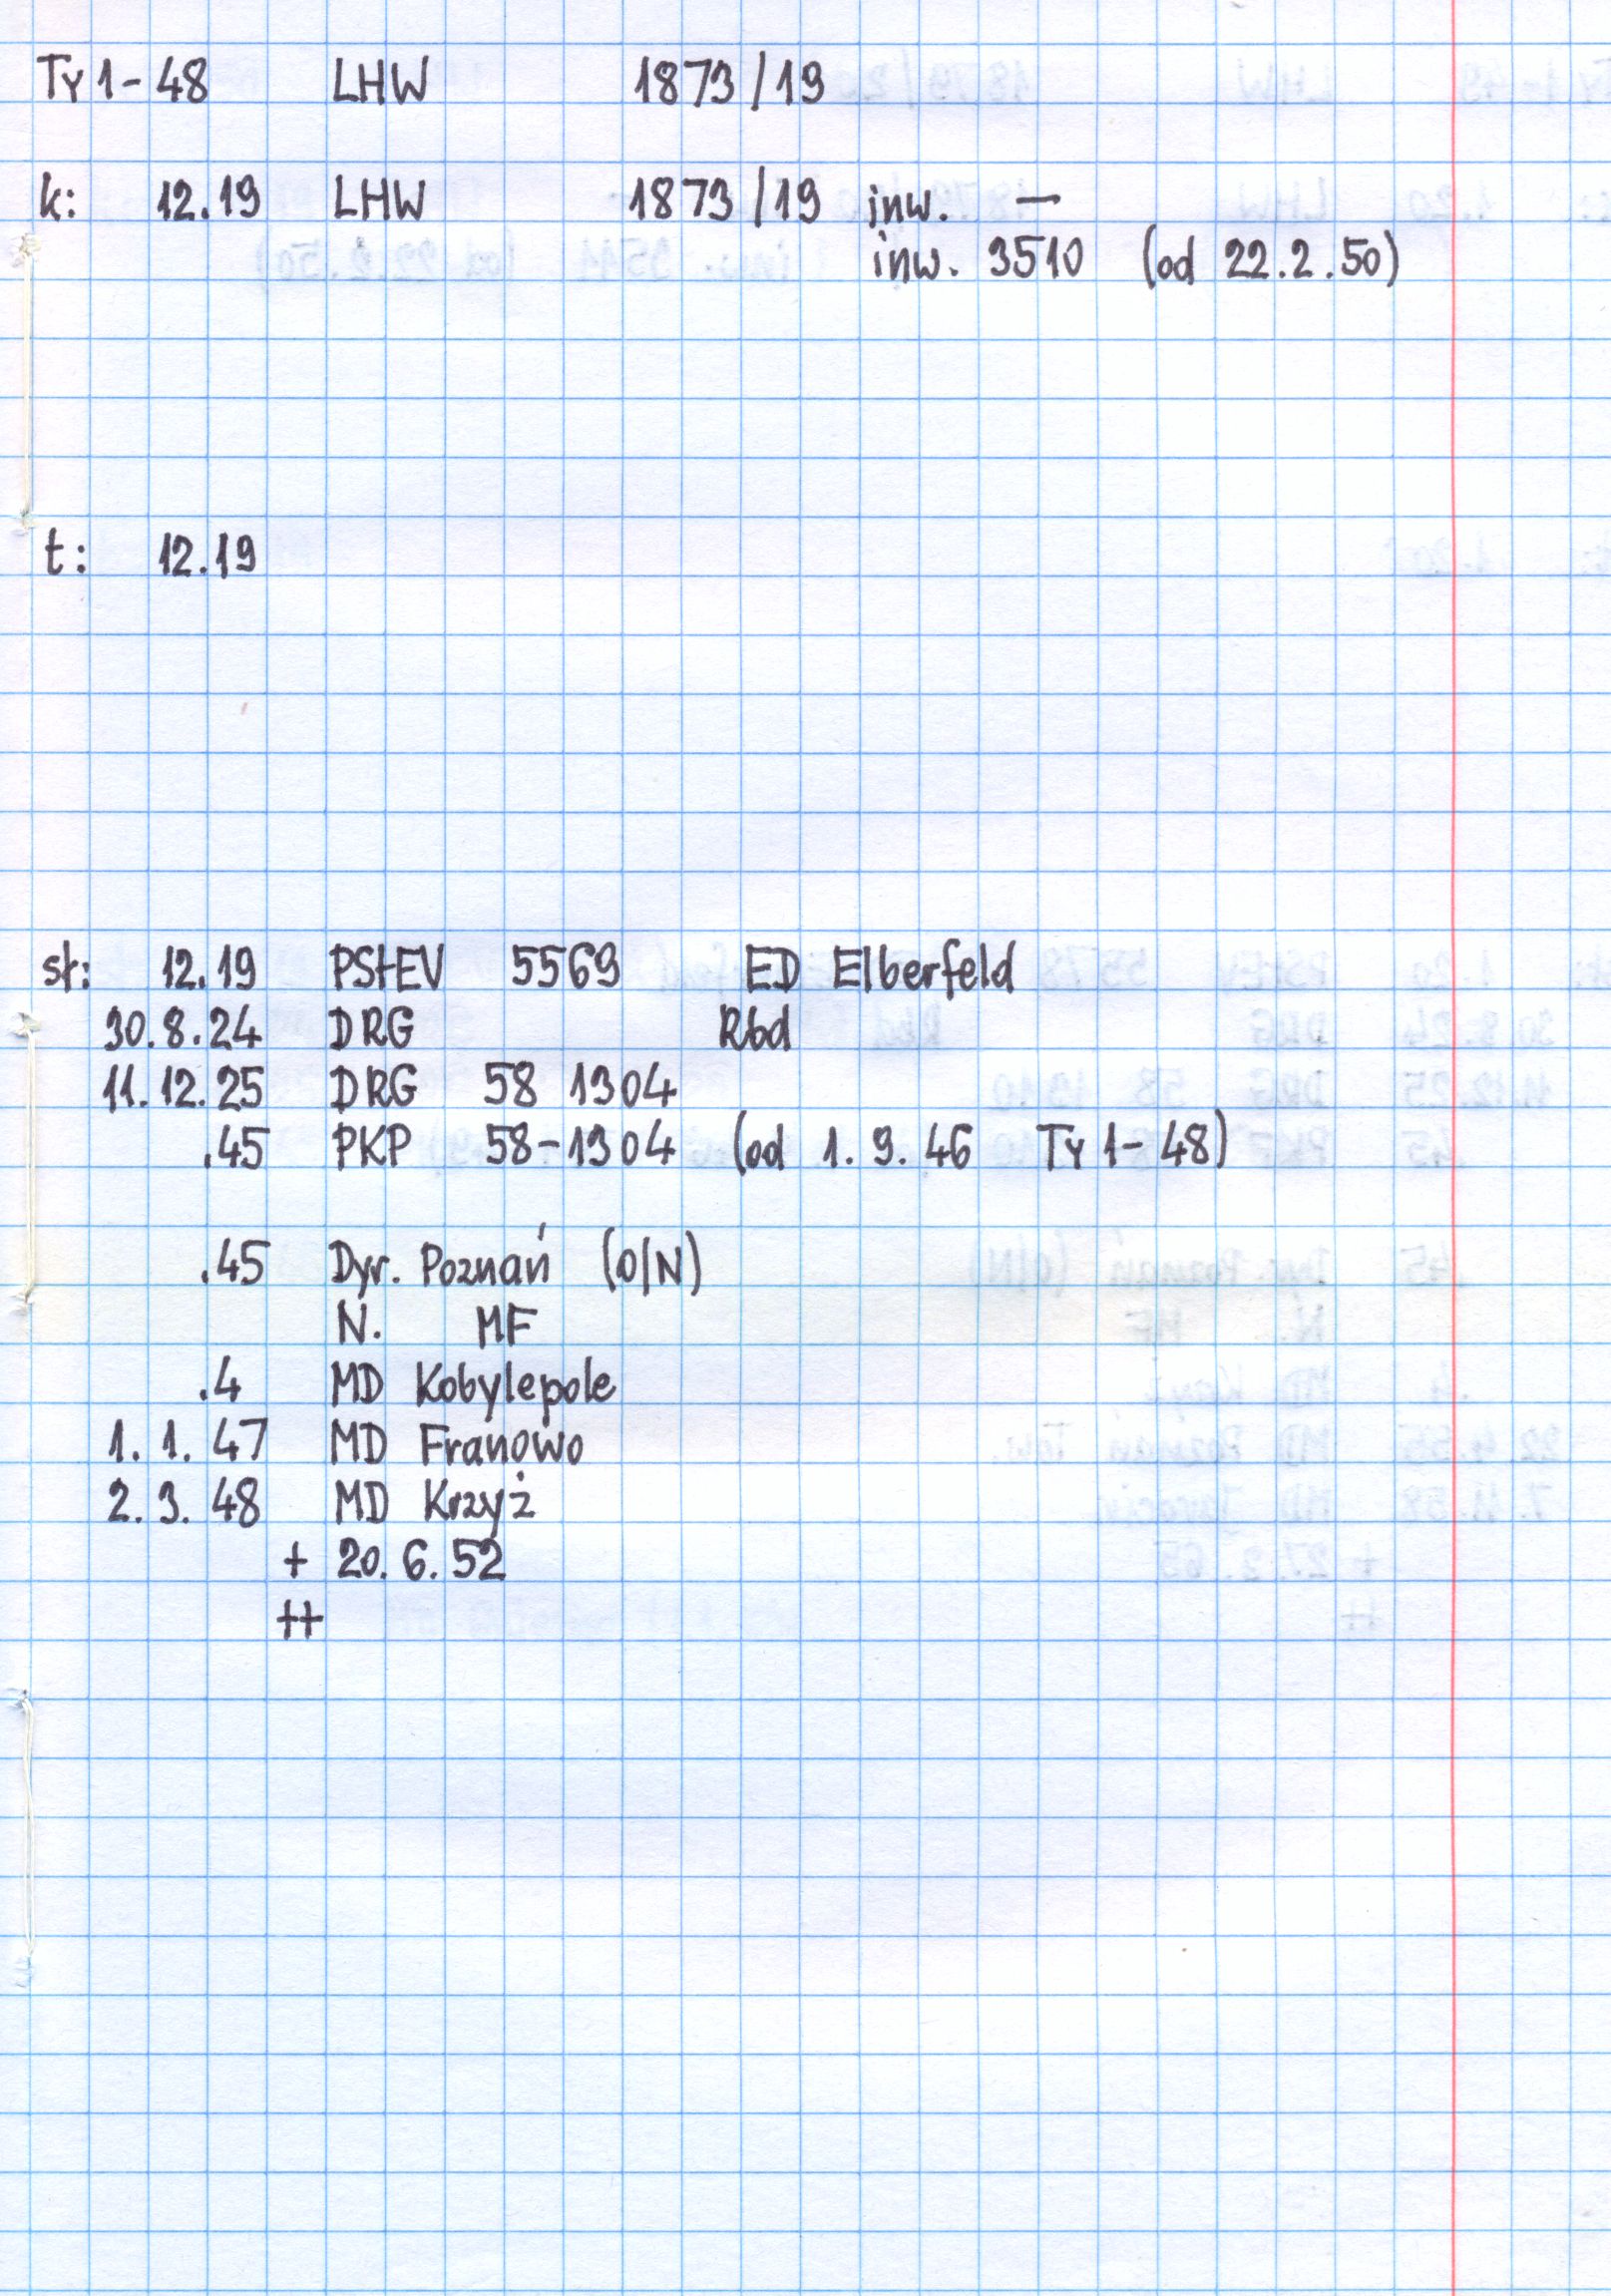 Ty 1-48 LHW 1873/19
k: 12.19 LHW 1873/19 inw. —
inw. 3510 (od 22.2.50)
t: 12.19
sł: 12.19 PStEV 5569 ED Elberfeld
30.8.24 DRG Rbd
11.12.25 DRG 58 1304
.45 PKP 58-1304 (od 1.9.46 Ty 1-48)
.45 Dyr. Poznań (O/N)
N. MF
.4 MD Kobylepole
1.1.47 MD Franowo
2.3.48 MD Krzyż
+ 20.6.52
++